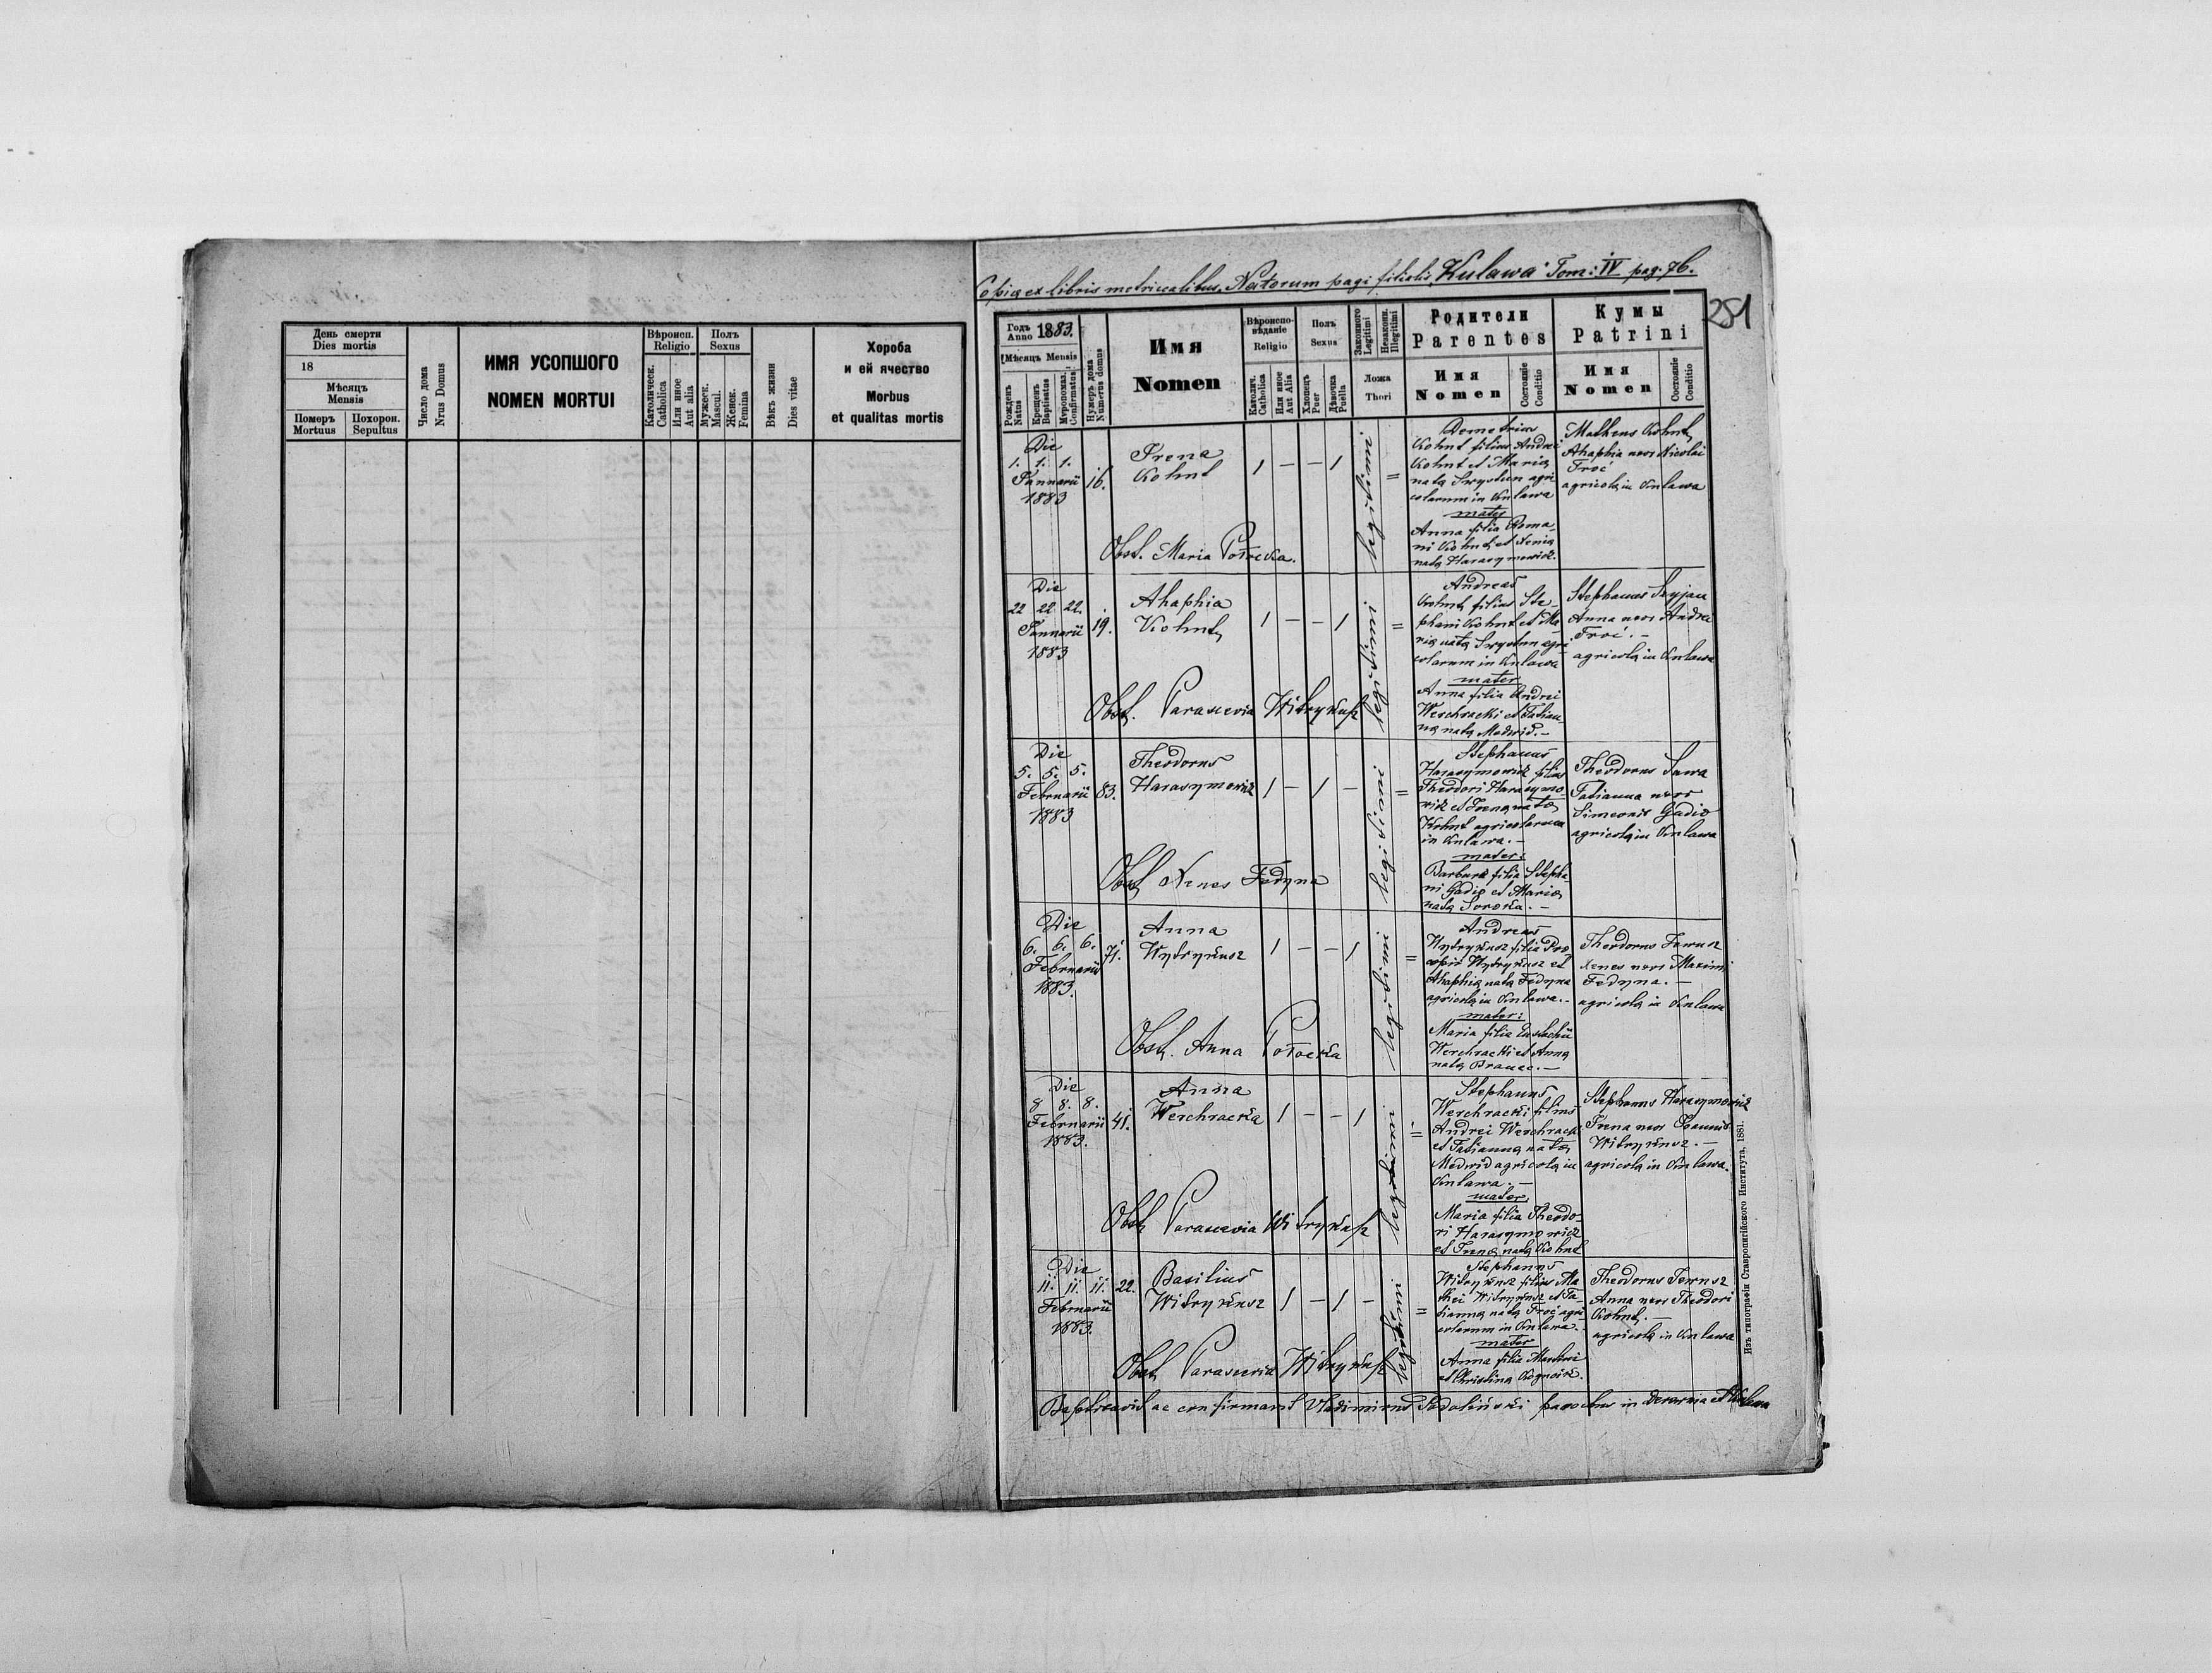 День смерти
Dies mortis
18
Мѣсяцъ
Mensis
Померъ
Mortuus
Похорон.
Sepultus
Число дома
Nrus Domus
ИМЯ УСОПШОГО
NOMEN MORTUI
Вѣроисп.
Religio
Католическ.
Catholica
Или иное
Aut alia
Полъ
Sexus
Мужеск.
Mascul.
Женск.
Femina
Вѣкъ жизни
Dies vitae
Хороба
и ей ячество
Morbus
et qualitas mortis
Copia ex libris metricalibus Natorum pagi filialis „Kulawa" Tom: IV pag. 76.
281
Годъ
Anno 1883.
Мѣсяцъ Mensis
Рожденъ
Natus
Крещенъ
Baptisatus
Мѵропомаз.
Confirmatus
Нумеръ дома
Numerus domus
Имя
Nomen
Вѣроиспо-
вѣданіе
Religio
Католич.
Catholica
Или иное
Aut Alia
Полъ
Sexus
Хлопецъ
Puer
Дѣвочка
Puella
Законного
Legitimi
Незаконн.
Illegitimi
Ложа
Thori
Родители
Parentes
Имя
Nomen
Состояніе
Conditio
Кумы
Patrini
Имя
Nomen
Состояніе
Conditio
Die
1. 1. 1.
Januarii
1883
16.
Irena
Kohut
1 – – 1
legitimi
=
Demetrius
Kohut filius Andrei
Kohut et Maria
nata Swystun agri
colarum in Kulawa
mater
Anna filia Roma
ni Kohut et Xenia
nata Harasymowicz.
Matheus Kohut
Ahaphia uxor Nicolai
Troć
agricola in Kulawa
Obst. Maria Potocka.
Die
22 22. 22.
Januarii
1883
19.
Ahaphia
Kohut
1 – – 1
legitimi
=
Andreas
Kohut filius Ste-
phani Kohut et Ma-
ria nata Swystun agri
colarum in Kulawa
mater
Anna filia Andrei
Werchracki et Tatian
na nata Medwid. –
Stephanus
Anna uxor Andrei
Troć. –
agricola in Kulawa
Obst. Parascevia Witrykusz
Die
5. 5. 5.
Februarii
1883
83.
Theodorus
Harasymowicz
1 – 1 –
legitimi
=
Stephanus
Harasymowicz filius
Theodori Harasymo-
wicz et Irena nata
Kohut agricolarum
in Kulawa. –
mater:
Barbara filia Stepha-
ni Gadio et Maria
nata Soroka. –
Theodorus Sawa
Tatianna uxor
Simeonis Gadio
agricola in Kulawa
Obst. Xenes Fedyna
Die
6. 6. 6.
Februarii
1883.
71.
Anna
Wytrykusz
1 – – 1
legitimi
=
Andreas
Wytrykusz filia Pro
copii Wytrykusz et
Ahaphia nata Fedyna
agricola in Kulawa. –
mater:
Maria filia Eustachii
Werchracki et Anna
nata
Theodorus
Xenes uxor Maximi
Fedyna. –
agricola in Kulawa
Obst. Anna Potocka
Die
8 8. 8.
Februarii
1883.
41.
Anna
Werchracka
1 – – 1
legitimi
=
Stephanus
Werchracki filius
Andrei Werchracki
et Tatianna nata
Medwid agricola in
Kulawa. –
mater
Maria filia Theodo-
ri Harasymowicz
et Irena nata Kohut
Stephanus Harasymowicz
Irena uxor Joannis
Witrykusz. –
agricola in Kulawa.
Obst. Parascevia Witrykusz
Die
11. 11. 11.
Februarii
1883.
22.
Basilius
Witrykusz
1 – 1 –
legitimi
=
Stephanus
Witrykusz filius Ma
thei Witrykusz et Ta-
tianna nata Troć agri-
colarum in Kulawa.
mater
Anna filia
et Christina
Theodorus
Anna uxor Theodori
Kohut. –
agricola in Kulawa
Obst. Parascevia Witrykusz
Baptisavit ac confirmavit Vladimirus Podoliński parochus in Derewnia et Kulawa
Изъ типографіи Ставропигійского Института, 1881.